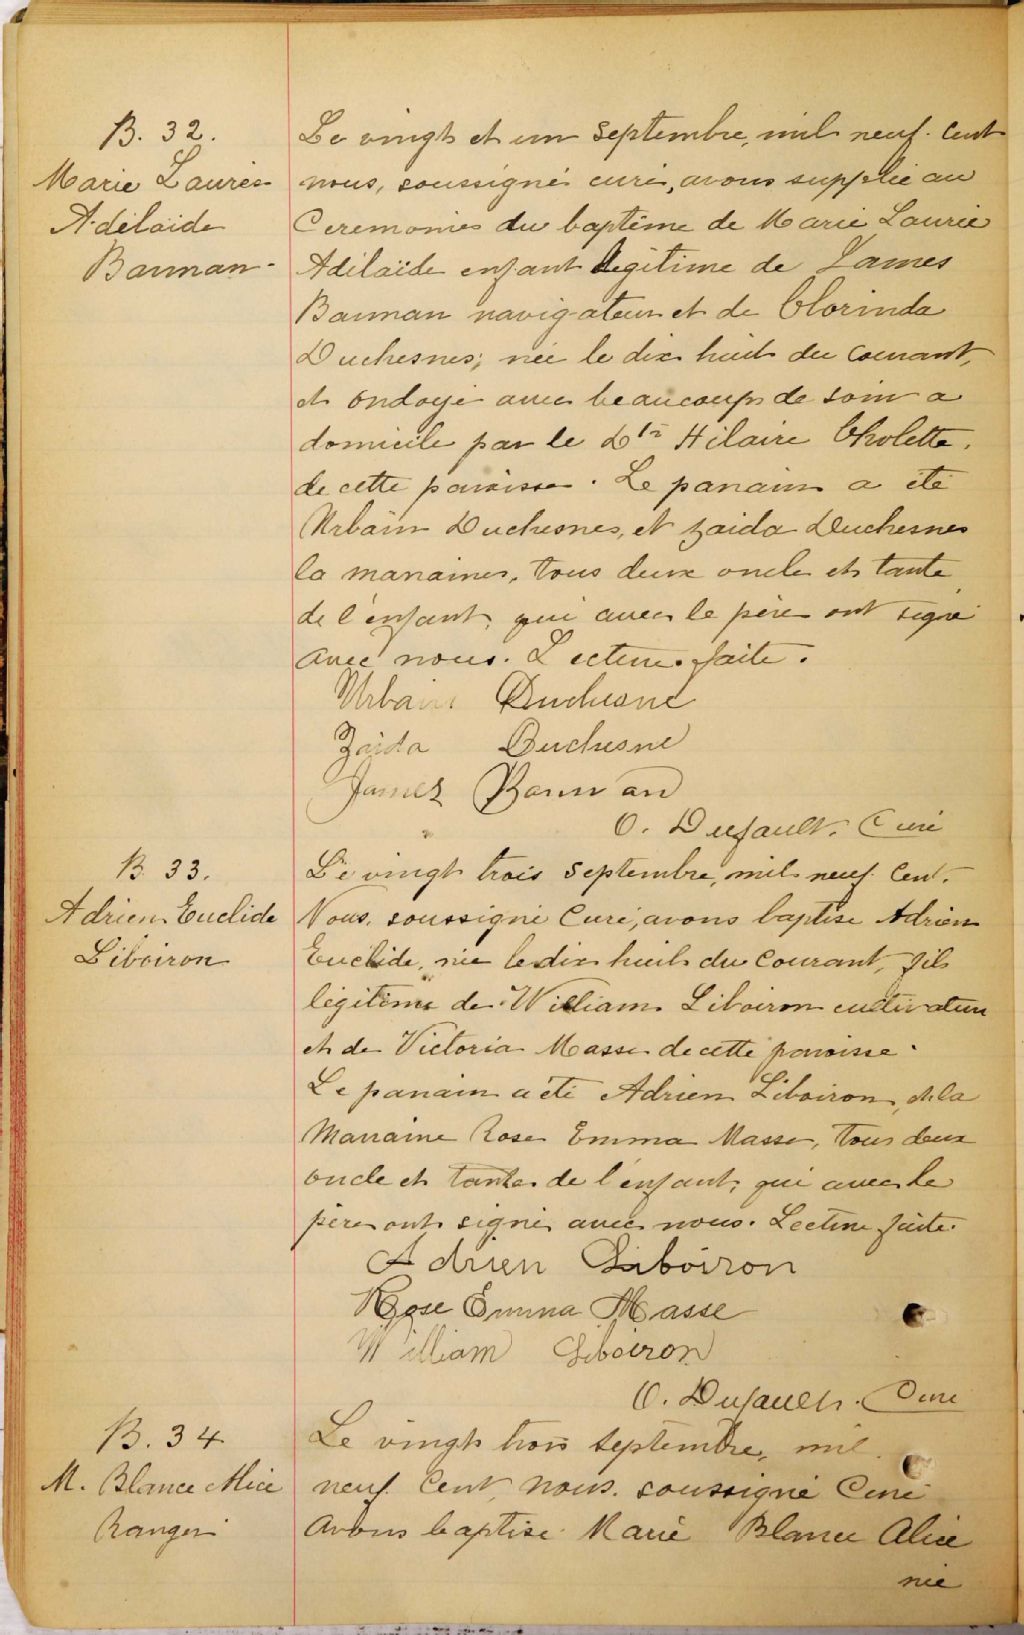 B. 32.
Marie Laurée
Adélaïde
Barman
Le vingt et un septembre, mil neuf. cent
nous, soussigné curé, avons supplié au
Ceremonies du baptême de Marie Laurée
Adélaïde enfant légitime de James
Barman navigateur et de Clorinda
Duchesnes; née le dix huit du courant,
et ondoyé avec beaucoup de soin a
domicile par le Dr Hilaire Cholette.
de cette paroisse. Le parrain a été
Urbain Duchesnes, et Zaida Duchesnes
la marraine, tous deux oncle et tante
de l'enfant, qui avec le père ont signé
avec nous. Lecture faite.
Urbain Duchesne
Zaida Duchesne
James Barman
O. Dufault. Curé
B. 33.
Adrien Euclide
Liboiron
Le vingt trois septembre, mil neuf. Cent.
Nous, soussigné Curé, avons baptisé Adrien
Euclide, née le dix huit du Courant, fils
légitime de William Liboiron cultivateur
et de Victoria Masse de cette paroisse.
Le parrain a été Adrien Liboiron, et la
Marraine Rose Emma Masse, tous deux
oncle et tante de l'enfant, qui avec le
père ont signé avec nous. Lecture faite.
Adrien Liboiron
Rose Emma Masse
William Liboiron
O. Dufault. Curé
B. 34
M. Blance Alice
Ranger
Le vingt trois septembre, mil
neuf. Cent, nous. soussigné Curé
avons baptisé Marie Blance Alice
née